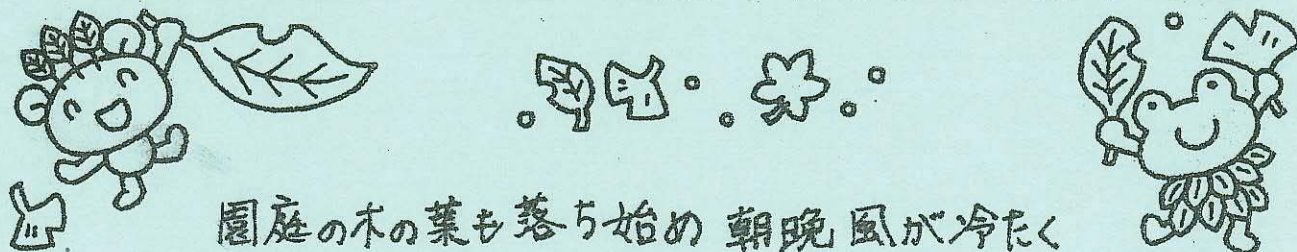 園庭の木の葉も落ち始め 朝晩風が冷たく